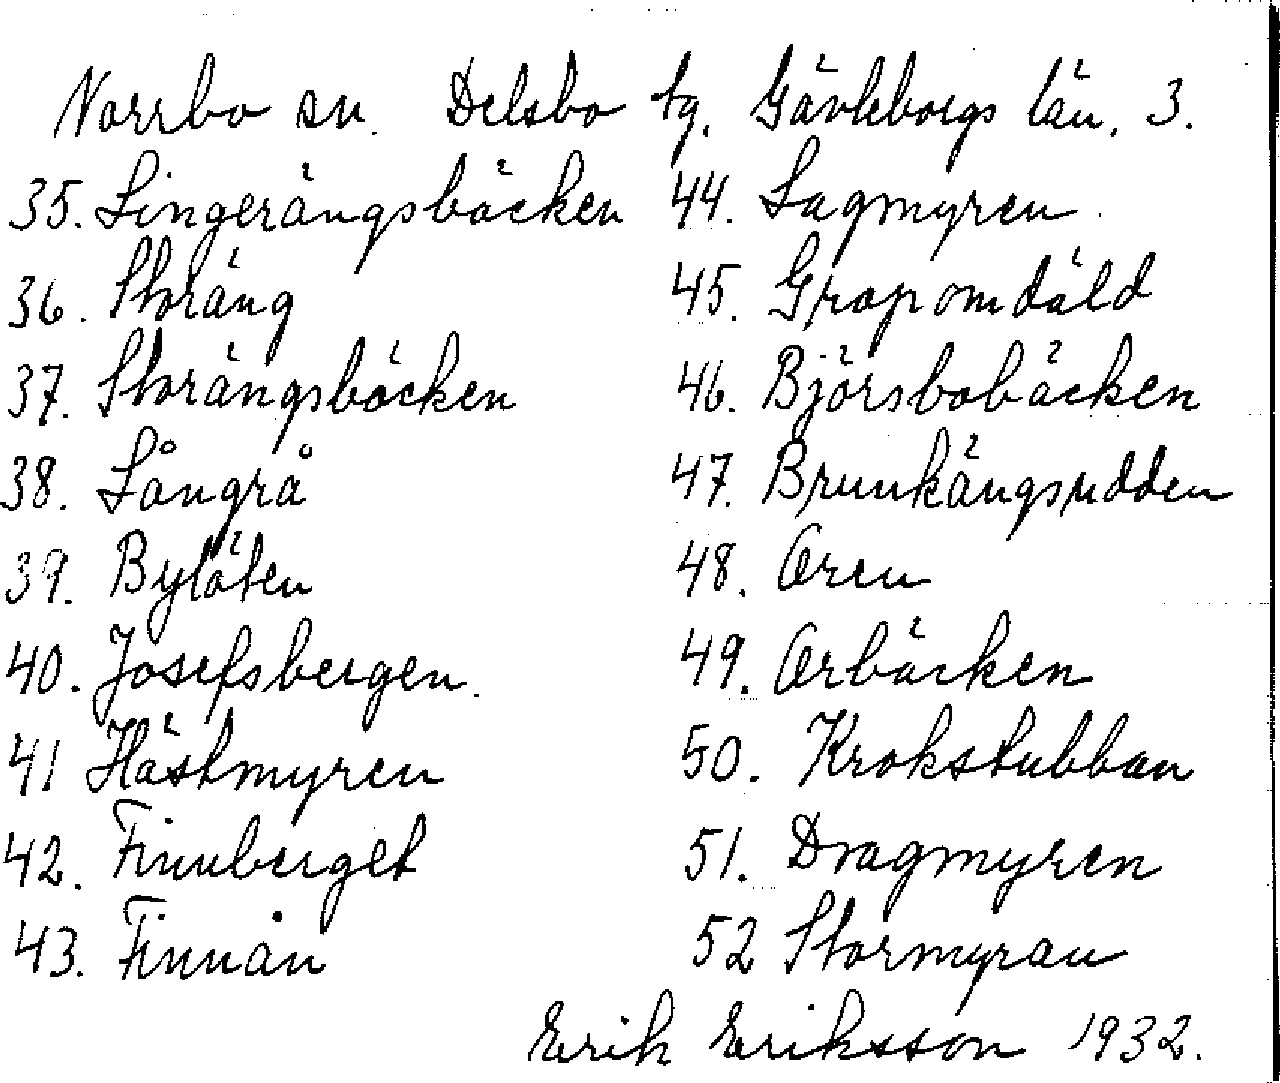 Norrbo sn. Delsbo tg. Gävleborgs län. 3.
35. Lingerängsbäcken
36. Storäng
37. Storängsbäcken
38. Långrå
39. Bylöten
40. Josefsbergen.
41 Hästmyren
42. Finnberget
43. Finnån
44. Lagmyren
45. Gropomdäld
46. Björsbobäcken
47. Brunkängsudden
48. Oren
49. Orbäcken
50. Krokstubban
51. Dragmyren
52 Stormyran
Erik Eriksson 1932.